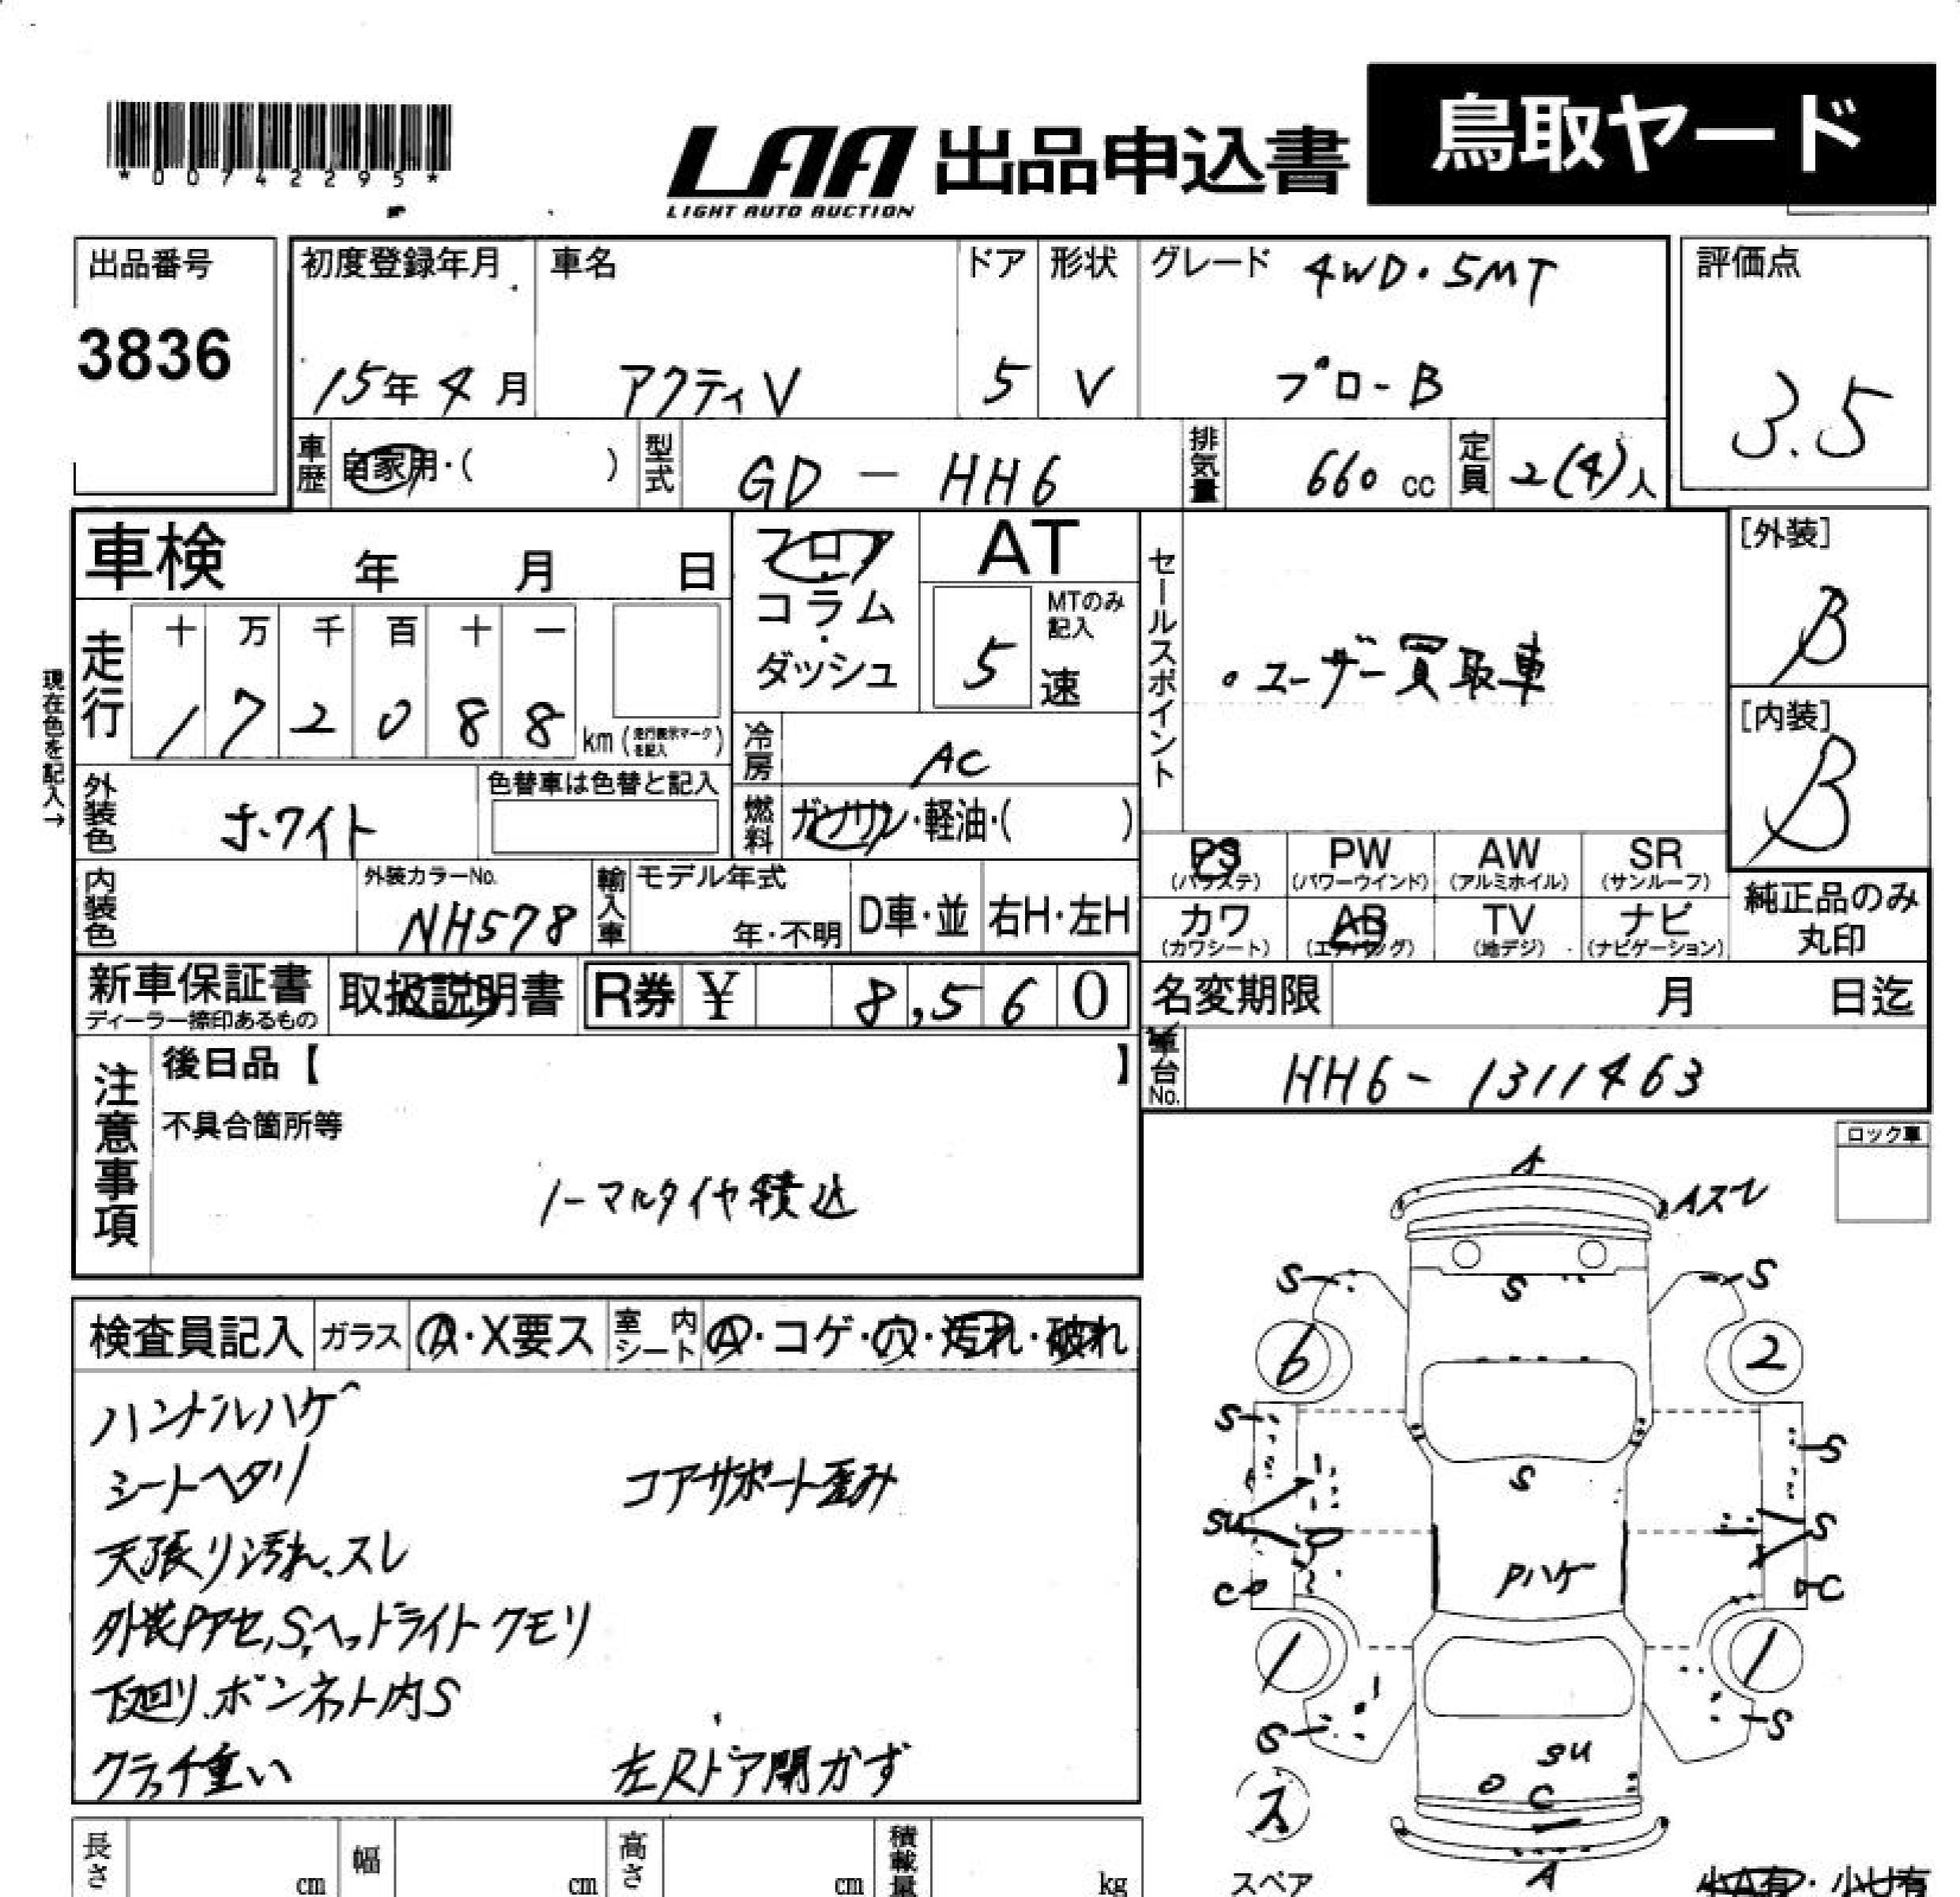 *00742295*
LAA 出品申込書 鳥取ヤード
LIGHT AUTO AUCTION
出品番号
3836
初度登録年月
15年4月
車名
アクティV
ドア
5
形状
V
グレード 4WD・5MT
プロ-B
評価点
3.5
車歴 自家用・( )
型式 GD-HH6
排気量 660cc
定員 2(4)人
車検 年 月 日
現在色を記入→
走行 十 万 千 百 十 一
1 7 2 0 8 8 km (走行表示マークを記入)
フロア・コラム・ダッシュ
AT
5速 MTのみ記入
冷房 AC
燃料 ガソリン・軽油・( )
セールスポイント
・ユーザー買取車
[外装]
B
[内装]
B
外装色 ホワイト
色替車は色替と記入
内装色
外装カラーNo.
NH578
輸入車 モデル年式 年・不明 D車・並 右H・左H
PS (パワステ) PW (パワーウインド) AW (アルミホイル) SR (サンルーフ)
カワ (カワシート) AB (エアバッグ) TV (地デジ) ナビ (ナビゲーション)
純正品のみ丸印
新車保証書 ディーラー捺印あるもの
取扱説明書
R券 ¥ 8,560
名変期限 月 日迄
車台No. HH6-1311463
注意事項
後日品【 】
不具合箇所等
ノーマルタイヤ積込
ロック車
検査員記入 ガラス A・X要ス 室内シート A・コゲ・穴・汚れ・破れ
ハンドルハゲ
シートヘタリ コアサポート歪み
天張り汚れ、スレ
外装Pアセ,S,ヘッドライトクモリ
下廻り、ボンネト内S
クラッチ重い 左Rドア開かず
A
Aスレ
S S S
6 2
S S
S
SU S
Pハゲ
C C
1 1
S S
SU
C
ス
A
スペア
長さ cm 幅 cm 高さ cm 積載量 kg